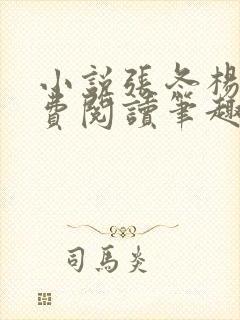 小說張冬楊
費閱讀筆趣
司馬炎